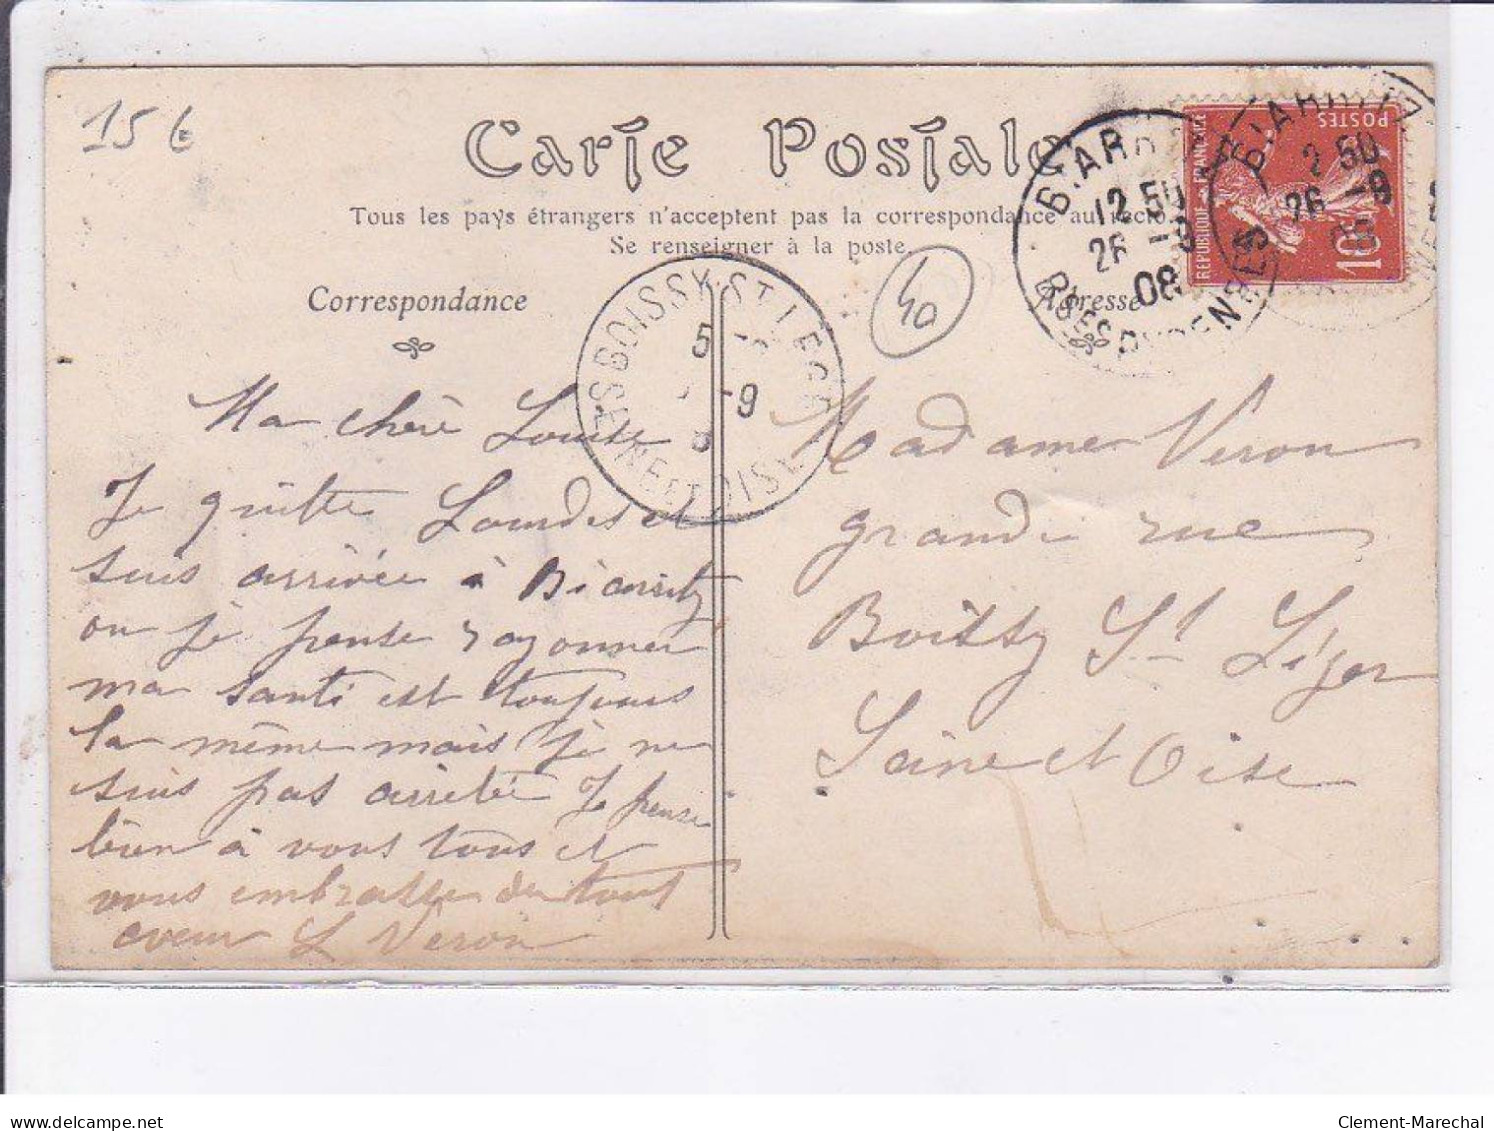 15 €
Carte Postale
Tous les pays étrangers n'acceptent pas la correspondance au recto.
Se renseigner à la poste.
Correspondance
Adresse
40
BIARRITZ
12 50
26 -9
08
BSES PYRENEES
BIARRITZ
2 50
26 -9
08
REPUBLIQUE FRANCAISE
POSTES
10
BOISSY-ST-LEGER
5
-9
SEINE ET OISE
Ma chère Louise
Je quitte Lourdes et
suis arrivée à Biarritz
ou je pense rayonner
ma santé est toujours
la même mais je ne
suis pas arretée Je pense
bien à vous tous et
vous embrasse de tout
coeur L Véron
Madame Veron
grande rue
Boissy St Léger
Seine et Oise
www.delcampe.net
Clement-Marechal